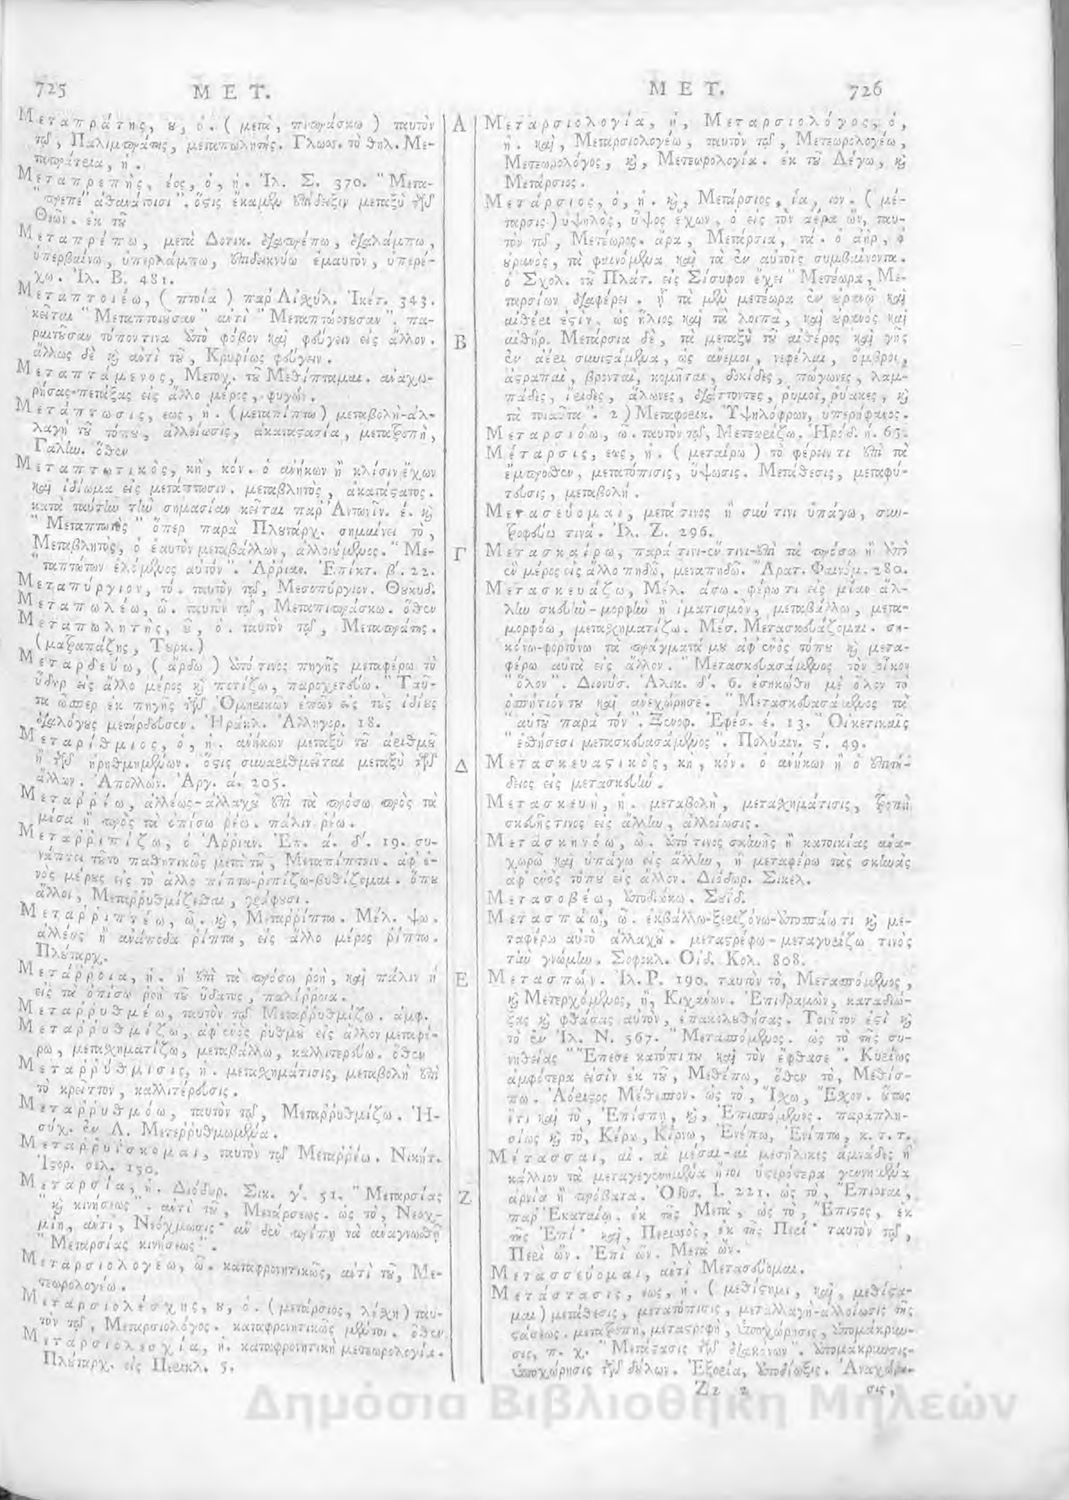 725 ΜΕΤ.
Μεταπράτης, ου, ὁ. (μετὰ, πιπράσκω) ταυτὸν
τῷ, Παλιμπράτης, μεταπωλητής. Γλωσσ. τὸ θηλ. Με-
ταπράτρια, ἡ.
Μεταπρεπὴς, έος, ὁ, ἡ. Ἰλ. Σ. 370. "Μετα-
πρεπέ' ἀθανάτοισι". ὅστις ἔκαμεν ἐπίδειξιν μεταξὺ τῶν
Θεῶν. ἐκ τοῦ
Μεταπρέπω, μετὰ Δοτικ. διαπρέπω, διαλάμπω,
ὑπερβαίνω, ὑπερλάμπω, ἐπιδεικνύω ἐμαυτὸν, ὑπερέ-
χω. Ἰλ. Β. 481.
Μεταπτοιέω, (πτοία) παρ' Αἰσχύλ. Ἱκέτ. 343.
κεῖται "Μεταπτοιοῦσαν" ἀντὶ "Μεταπτώσουσαν". πα-
ραιτοῦσαν τόπον τινὰ ὑπὸ φόβου καὶ φεύγειν εἰς ἄλλον.
ἄλλως δὲ καὶ ἀντὶ τοῦ, Κρυφίως φεύγειν.
Μεταπτάμενος, Μετοχ. τοῦ Μεθίπταμαι. ἀναχω-
ρήσας-πετάξας εἰς ἄλλο μέρος, φυγών.
Μετάπτωσις, εως, ἡ. (μεταπίπτω) μεταβολὴ-ἀλ-
λαγὴ τοῦ τόπου, ἀλλοίωσις, ἀκαταστασία, μετατροπὴ,
Γαλην. ὅθεν
Μεταπτωτικὸς, κὴ, κόν. ὁ ἀνήκων ἢ κλίσιν ἔχων
καὶ ἰδίωμα εἰς μετάπτωσιν. μεταβλητὸς, ἀκατάστατος.
κατὰ ταύτην τὴν σημασίαν κεῖται παρ' Ἀντωνῖν. έ. καὶ
"Μεταπτωτὸς" ὅπερ παρὰ Πλουτάρχ. σημαίνει τὸ,
Μεταβλητὸς, ὁ ἑαυτὸν μεταβάλλων, ἀλλοιούμενος. "Με-
ταπτώτων ἑλόμενος αὑτόν". Ἀρριαν. Ἐπίκτ. β'. 22.
Μεταπύργιον, τό. ταυτὸν τῷ, Μεσοπύργιον. Θουκυδ.
Μεταπωλέω, ῶ. ταυτὸν τῷ, Μεταπιπράσκω. ὅθεν
Μεταπωλητὴς, οῦ, ὁ. ταυτὸν τῷ, Μεταπράτης.
(ματραπάζης, Τουρκ.)
Μεταρδεύω, (ἄρδω) ἀπό τινος πηγῆς μεταφέρω τὸ
ὕδωρ εἰς ἄλλο μέρος καὶ ποτίζω, παροχετεύω. "Ταῦ-
τα ὥσπερ ἐκ πηγῆς τῶν Ὁμηρικῶν ἐπῶν εἰς τοὺς ἰδίους
διαλόγους μετήρδευσεν. Ἡρακλ. Ἀλληγορ. 18.
Μεταρίθμιος, ὁ, ἡ. ἀνήκων μεταξὺ τοῦ ἀριθμοῦ
ἢ τῶν ἠριθμημένων. ὅστις συναριθμεῖται μεταξὺ τῶν
ἄλλων. Ἀπολλων. Ἀργ. ά. 205.
Μεταρρέω, ἀλλέως-ἀλλαχοῦ ἐπὶ τὰ πρόσω πρὸς τὰ
μέσα ἢ πρὸς τὰ ὀπίσω ῥέω. πάλιν ῥέω.
Μεταρριπίζω, ὁ Ἀρριαν. Ἐπ. ά. δ'. 19. συ-
νάπτει τοῦτο παθητικῶς μετὰ τοῦ, Μεταπίπτειν. ἀφ' ἑ-
νὸς μέρους εἰς τὸ ἄλλο πίπτω-ῥιπίζω-βυθίζομαι. ὅπου
ἄλλοι, Μεταρρυθμίζεσθαι, γράφουσι.
Μεταρριπτέω, ῶ. καὶ, Μεταρρίπτω. Μέλ. ψω.
ἀλλέως ἢ ἀνάποδα ῥίπτω, εἰς ἄλλο μέρος ῥίπτω.
Πλούταρχ.
Μετάρροια, ἡ. ἡ ἐπὶ τὰ πρόσω ῥοὴ, καὶ πάλιν ἡ
εἰς τὰ ὀπίσω ῥοὴ τοῦ ὕδατος, παλίρροια.
Μεταρρυθμέω, ταυτὸν τῷ Μεταρρυθμίζω. ἀμφ.
Μεταρρυθμίζω, ἀφ' ἑνὸς ῥυθμοῦ εἰς ἄλλον μεταφέ-
ρω, μετασχηματίζω, μεταβάλλω, καλλιτερεύω. ὅθεν
Μεταρρύθμισις, ἡ. μετασχημάτισις, μεταβολὴ ἐπὶ
τὸ κρεῖττον, καλλιτέρευσις.
Μεταρρυθμόω, ταυτὸν τῷ, Μεταρρυθμίζω. Ἡ-
σύχ. ἐν Λ. Μετερρυθμωμένα.
Μεταρρυΐσκομαι, ταυτὸν τῷ Μεταρρέω. Νικήτ.
Ἱστορ. σελ. 150.
Μεταρσία, ἡ. Διόδωρ. Σικ. γ'. 51. "Μεταρσίας
καὶ κινήσεως". ἀντὶ τοῦ, Μετάρσεως. ὡς τὸ, Νεοχ-
μίη, ἀντὶ, Νεόχμωσις· ἂν δὲν πρέπῃ νὰ ἀναγνωσθῇ
"Μεταρσίας κινήσεως".
Μεταρσιολογέω, ῶ. καταφρονητικῶς, ἀντὶ τοῦ, Με-
τεωρολογέω.
Μεταρσιολέσχης, ου, ὁ. (μετάρσιος, λέσχη) ταυ-
τὸν τῷ, Μεταρσιολόγος. καταφρονητικῶς μέντοι. ὅθεν
Μεταρσιολεσχία, ἡ. καταφρονητικὴ μετεωρολογία.
Πλούταρχ. εἰς Περικλ. 5.
Α
Β
Γ
Δ
Ε
Ζ
ΜΕΤ. 726
Μεταρσιολογία, ἡ, Μεταρσιολόγος, ὁ,
ἡ. καὶ, Μεταρσιολογέω, ταυτὸν τῷ, Μετεωρολογέω,
Μετεωρολόγος, καὶ, Μετεωρολογία. ἐκ τοῦ Λέγω, καὶ
Μετάρσιος.
Μετάρσιος, ὁ, ἡ. καὶ, Μετάρσιος, ία, ιον. (μέ-
ταρσις) ὑψηλὸς, ὕψος ἔχων, ὁ εἰς τὸν ἀέρα ὢν, ταυ-
τὸν τῷ, Μετέωρος. ἄρα, Μετάρσια, τά. ὁ ἀὴρ, ὁ
οὐρανὸς, τὰ φαινόμενα καὶ τὰ ἐν αὐτοῖς συμβαίνοντα.
ὁ Σχολ. τοῦ Πλάτ. εἰς Σίσυφον ἔχει "Μετέωρα, Με-
ταρσίων διαφέρει. ἢ τὰ μὲν μετέωρα ἐν οὐρανῷ καὶ
αἰθέρι ἐστὶν, ὡς ἥλιος καὶ τὰ λοιπὰ, καὶ οὐρανὸς καὶ
αἰθήρ. Μετάρσια δὲ, τὰ μεταξὺ τοῦ αἰθέρος καὶ γῆς
ἐν ἀέρι συνιστάμενα, ὡς ἄνεμοι, νεφέλαι, ὄμβροι,
ἀστραπαὶ, βρονταὶ, κομῆται, δοκίδες, πώγωνες, λαμ-
πάδες, ἴριδες, ἅλωνες, διάττοντες, ρυμοὶ, ρύακες, καὶ
τὰ τοιαῦτα". 2) Μεταφορικ. Ὑψηλόφρων, ὑπερήφανος.
Μεταρσιόω, ῶ. ταυτὸν τῷ, Μετεωρίζω. Ἡρόδ. ή. 65.
Μέταρσις, εως, ἡ. (μεταίρω) τὸ φέρειν τι ἐπὶ τὰ
ἔμπροσθεν, μετατόπισις, ὕψωσις. Μετάθεσις, μεταφύ-
τευσις, μεταβολή.
Μετασεύομαι, μετά τινος ἢ σύν τινι ὑπάγω, συν-
τροφεύω τινά. Ἰλ. Ζ. 296.
Μετασκαίρω, παρά τινι-ἔν τινι-ἐπὶ τὰ πρόσω ἢ ἀπὸ
ἓν μέρος εἰς ἄλλο πηδῶ, μεταπηδῶ. Ἄρατ. Φαινόμ. 280.
Μετασκευάζω, Μέλ. άσω. φέρω τι εἰς μίαν ἄλ-
λην σκευὴν-μορφὴν ἢ ἱματισμὸν, μεταβάλλω, μετα-
μορφόω, μετασχηματίζω. Μέσ. Μετασκευάζομαι. ση-
κόνω-φορτόνω τὰ πράγματά μου ἀφ' ἑνὸς τόπου καὶ μετα-
φέρω αὐτὰ εἰς ἄλλον. "Μετασκευασάμενος τὸν οἶκον
ὅλον". Διονύσ. Ἁλικ. δ'. 6. ἐσηκώθη μὲ ὅλον τὸ
ὀσπήτιόν του καὶ ἀνεχώρησε. "Μετασκευασάμενος τὰ
αὐτοῦ παρὰ τόν". Ξενοφ. Ἐφεσ. έ. 13. "Οἰκετικαῖς
ἐσθήσεσι μετασκευασάμενος". Πολύαιν. ς'. 49.
Μετασκευαστικὸς, κὴ, κόν. ὁ ἀνήκων ἢ ὁ ἐπιτή-
δειος εἰς μετασκευήν.
Μετασκευὴ, ἡ. μεταβολὴ, μετασχημάτισις, τροπὴ
σκευῆς τινος εἰς ἄλλην, ἀλλοίωσις.
Μετασκηνόω, ῶ. ἀπό τινος σκηνῆς ἢ κατοικίας ἀνα-
χωρῶ καὶ ὑπάγω εἰς ἄλλην, ἢ μεταφέρω τὰς σκηνὰς
ἀφ' ἑνὸς τόπου εἰς ἄλλον. Διόδωρ. Σικελ.
Μετασοβέω, ἀποδιώκω. Σουΐδ.
Μετασπάω, ῶ. ἐκβάλλω-ξερριζόνω-ἀποσπάω τι καὶ με-
ταφέρω αὐτὸ ἀλλαχοῦ. μεταστρέφω-μεταγυρίζω τινὸς
τὴν γνώμην. Σοφοκλ. Οἰδ. Κολ. 808.
Μετασπών. Ἰλ. Ρ. 190. ταυτὸν τὸ, Μετασπόμενος,
καὶ Μετερχόμενος, ἢ, Κιχάνων. Ἐπιδραμὼν, καταδιώ-
ξας καὶ φθάσας αὐτὸν, ἐπακολουθήσας. Τοιοῦτον ἐστὶ καὶ
τὸ ἐν Ἰλ. Ν. 567. "Μετασπόμενος. ὡς τὸ τῆς συ-
νηθείας "Ἔπεσε κατόπι του καὶ τὸν ἔφθασε". Κυρίως
ἀμφότερα εἰσὶν ἐκ τοῦ, Μεθέπω, ὅθεν τὸ, Μεθίσ-
πω. Ἀόριστος Μέθισπον. ὡς τὸ, Ἴχω, Ἔχον. οὕτως
ἔτι καὶ τὸ, Ἐπίσπῃ, καὶ, Ἐπισπόμενος. παραπλη-
σίως καὶ τὸ, Κέρω, Κέρνω, Ἐνέπω, Ἐνίπτω, κ. τ. τ.
Μέτασσαι, αἱ. αἱ μέσαι-αἱ μεσήλικες ἀμνάδες ἢ
κάλλιον τὰ μεταγεγενημένα ἤτοι ὑστερότερα γεννημένα
ἀρνία ἢ πρόβατα. Ὀδυσ. Ι. 221. ὡς τὸ, Ἔπισσαι,
παρ' Ἑκαταίῳ. ἐκ τῆς Μετὰ, ὡς τὸ, Ἔπισσος, ἐκ
τῆς Ἐπί· καὶ, Περισσὸς, ἐκ τῆς Περί· ταυτὸν τῷ,
Περὶ ὤν. Ἐπὶ ὤν. Μετὰ ὤν.
Μετασσεύομαι, ἀντὶ Μετασεύομαι.
Μετάστασις, εως, ἡ. (μεθίστημι, καὶ, μεθίστα-
μαι) μετάθεσις, μετατόπισις, μεταλλαγὴ-ἀλλοίωσις τῆς
στάσεως. μετατροπὴ, μεταστροφὴ, ἀποχώρησις, ἀπομάκρυν-
σις, π. χ. "Μετάστασις τῶν διακόνων". ἀπομάκρυνσις-
ἀποχώρησις τῶν δούλων. Ἐξορία, ἀποδίωξις. Ἀναχώρη-
Ζz 2 σις,
Δημόσια Βιβλιοθήκη Μηλεών